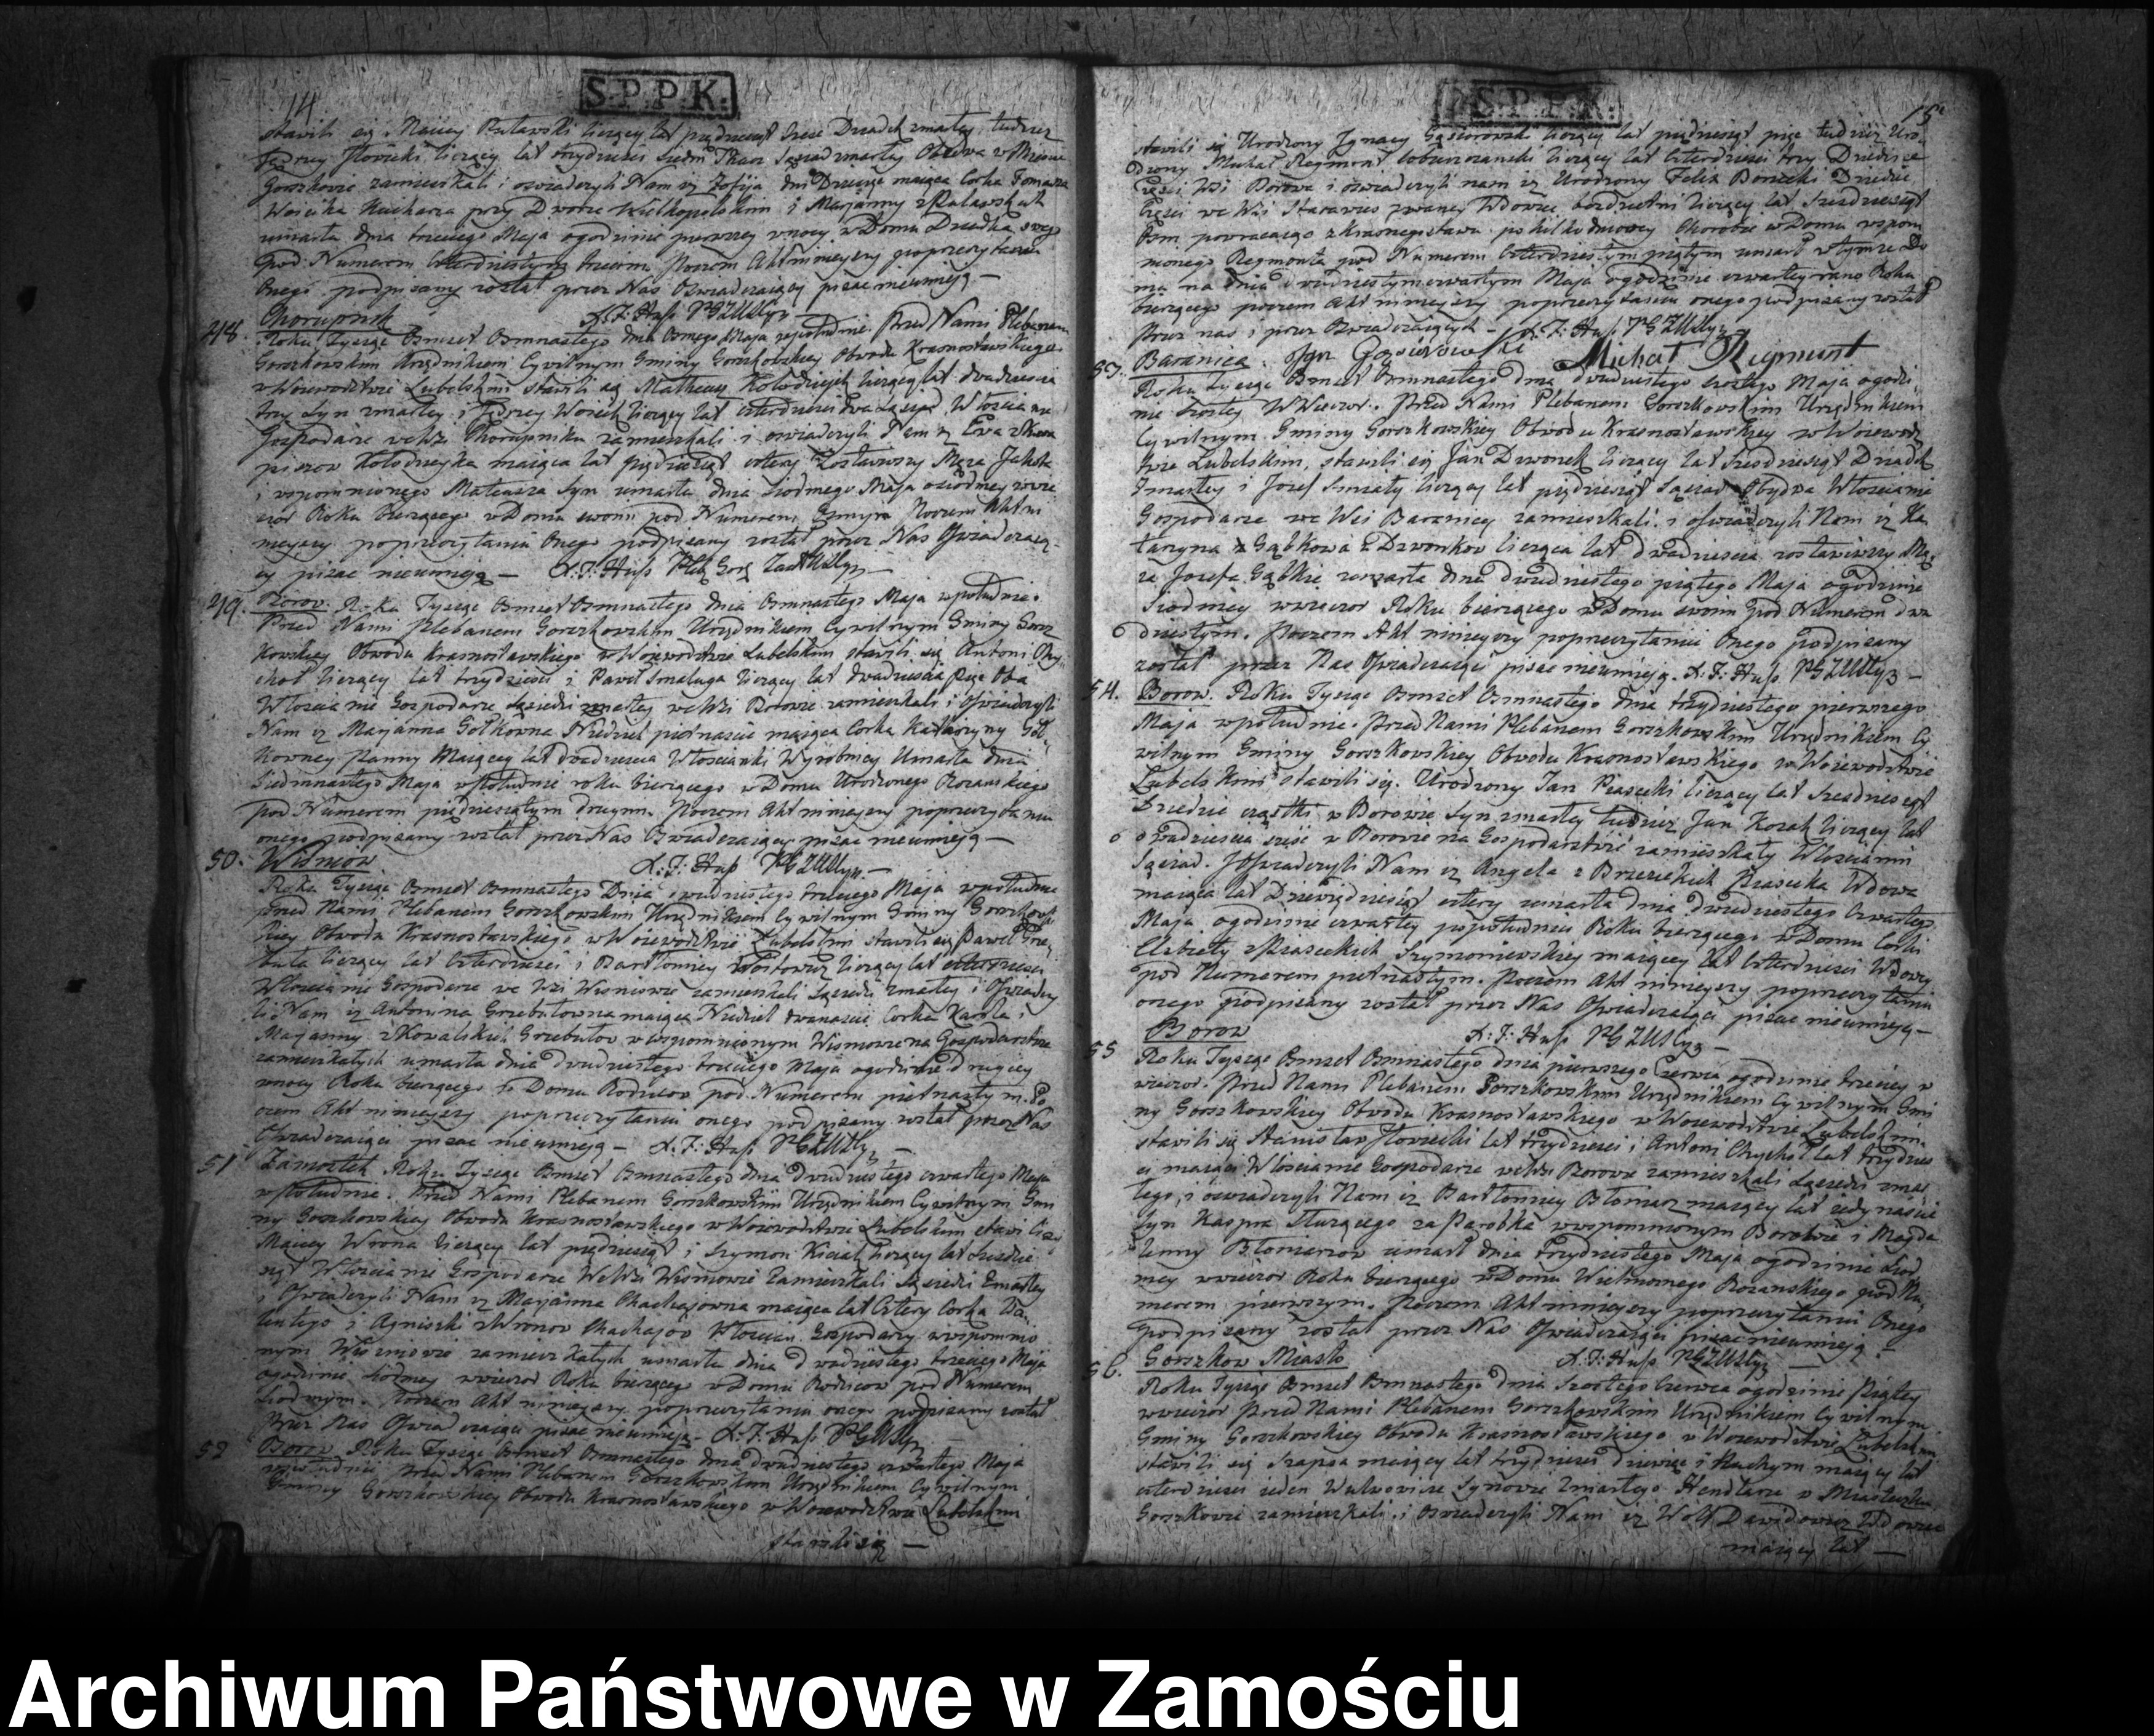 14
S.P.P.K.
stawili się Maciey Puławski liczący lat pięćdziesiąt sześć Dziadek zmarłey, tudzież
liczący lat trzydzieści siedm Tkacz Sąsiad zmarłey Obydwa w Mieście
Gorzkowie zamieszkali i oswiadczyli Nam iż Zofija dni Dziesięć maiąca Corka Tomasza
Woicika Kucharza przy Dworze Wielkopolskim i Maryanny z Puławskich
umarła dnia trzeciego Maja o godzinie pierwszey w nocy w Domu Dziadka swego
pod Numerem czterdziestym trzecim, Poczem Akt ninieyszy po przeczytaniu
Onego podpisany został przez Nas Oswiadczaiący pisac nieumieią —
48. Chorupnik
X. J. Hess PGZUSCyw
Roku Tysiąc Osmset Osmnastego dnia Osmego Maja w południe. Przed Nami Plebanem
Gorzkowskim Urzędnikiem Cywilnym Gminy Gorzkowskiey Obwodu Krasnostawskiego
w Woiewodztwie Lubelskim stawili się Matheusz Kołodzieyek liczący lat dwadzieścia
trzy Syn zmarłey i Jędrzey Woicik liczący lat czterdzieści dwa Sąsiad Włoscianie
Gospodarze we Wsi Chorupniku zamieszkali i oswiadczyli Nam iż Ewa
Kołodzieyka maiąca lat pięćdziesiąt cztery Zostawiwszy Męża Jakoba
i wspomnionego Mateusza Syna umarła dnia Siodmego Maja o siodmey wwie
czor Roku bieżącego w Domu swoim pod Numerem Poczem Akt ni
nieyszy po przeczytaniu Onego podpisany został przez Nas Oswiadczaią
cy pisac nieumieią —
49. Borow. Roku Tysiąc Osmset Osmnastego dnia Osmnastego Maja w południe.
Przed Nami Plebanem Gorzkowskim Urzędnikiem Cywilnym Gminy Gorz
kowskiey Obwodu Krasnostawskiego w Woiewodztwie Lubelskim stawili się Antoni Chy
choł liczący lat trzydzieści i Paweł Smaluga liczący lat dwadzieścia pięć Oba
Włoscianie Gospodarze Sąsiedzi zmarłey we Wsi Borowie zamieszkali i Oswiadczyli
Nam iż Maryanna Gołkowna Niedziel piętnaście maiąca Corka Katarzyny Goł
kowney Panny Maiącey lat dwadzieścia Włoscianki Wyrobnicy Umarła dnia
Siedmnastego Maja w południe roku bieżącego w Domu Urodzonego Rozanskiego
pod Numerem pięćdziesiątym drugim. Poczem Akt ninieyszy po przeczytaniu
onego podpisany został przez Nas Oswiadczaiący pisac nieumieią —
50. Wisniow
X. J. Hess PGZUSCyw —
Roku Tysiąc Osmset Osmnastego Dnia dwudziestego trzeciego Maja w południe
przed Nami Plebanem Gorzkowskim Urzędnikiem Cywilnym Gminy Gorzkow
skiey Obwodu Krasnostawskiego w Woiewodztwie Lubelskim stawili się Paweł Grze
buła liczący lat czterdzieści i Bartłomiey liczący lat czterdzieści
Włoscianie Gospodarze we Wsi Wisniowie zamieszkali Sąsiedzi zmarłey i Oswiadczy
li Nam iż Antonina Grzebułowna maiąca Niedziel dwanascie Corka Karola i
Maryanny z Kowalskich Grzebułow w wspomnionym Wisniowie na Gospodarstwie
zamieszkałych umarła dnia dwudziestego trzeciego Maja o godzinie drugiey
w nocy Roku bieżącego w Domu Rodzicow pod Numerem piętnastym. Po
czem Akt ninieyszy po przeczytaniu onego podpisany został przez Nas
Oswiadczaiący pisac nieumieią — X. J. Hess PGZUSCyw —
51. Zamostek Roku Tysiąc Osmset Osmnastego dnia dwudziestego czwartego Maja
w południe. Przed Nami Plebanem Gorzkowskim Urzędnikiem Cywilnym Gmi
ny Gorzkowskiey Obwodu Krasnostawskiego w Woiewodztwie Lubelskim stawili się
Maciey Wrona liczący lat pięćdziesiąt i Szymon liczący lat Szesdzie
siąt Włoscianie Gospodarze We Wsi Wisniowie Zamieszkali Sąsiedzi Zmarłey
i Oswiadczyli Nam iż Maryanna Chachaiowna maiąca lat Cztery Corka Wa
lentego i Agnieszki z Wronow Chachaiow Włoscian Gospodarzy w wspomnio
nym Wisniowie zamieszkałych umarła dnia dwudziestego trzeciego Maja
o godzinie siodmey wwieczor Roku bieżącego w Domu Rodzicow pod Numerem
siodmym. Poczem Akt ninieyszy po przeczytaniu onego podpisany został
przez Nas Oswiadczaiący pisac nieumieią — X. J. Hess PGZUSCyw
52. Borow Roku Tysiąc Osmset Osmnastego dnia dwudziestego czwartego Maja
w południe przed Nami Plebanem Gorzkowskim Urzędnikiem Cywilnym
Gminy Gorzkowskiey Obwodu Krasnostawskiego w Woiewodztwie Lubelskim
stawili się —
15
S.P.P.K.
stawili się Urodzony Jgnacy Gąsiorowski liczący lat pięćdziesiąt pięć tudzież Uro
dzony Michał Regmunt liczący lat czterdzieści trzy Dziedzice
Części Wsi Borowa i oswiadczyli nam iż Urodzony Felix Borzecki Dziedzic
Części we Wsi zwaney Wdowiec bezdzietni liczący lat Szesdziesiąt
Osm powracaiąc z Krasnegostawu po kilkodniowey Chorobie w Domu wspom
nionego Regmonta pod Numerem Czterdziestym piątym umarł w tymże Do
mu na dniu dwudziestym czwartym Maja o godzinie czwartey rano Roku
bieżącego poczem Akt ninieyszy po przeczytaniu onego podpisany został
przez nas i przez Oswiadczaiących — X. J. Hess PGZUSCyw
53. Baranica. Jgn Gąsiorowski Michał Regmunt
Roku Tysiąc Osmset Osmnastego dnia dwudziestego szostego Maja o godzi
nie szostey WWieczor. Przed Nami Plebanem Gorzkowskim Urzędnikiem
Cywilnym Gminy Gorzkowskiey Obwodu Krasnostawskiey w Woiewodz
twie Lubelskim, stawili się Jan Dzwonek liczący lat szesdziesiąt Dziadek
Zmarłey i Jozef Smiały liczący lat pięćdziesiąt Sąsiad Obydwa Włoscianie
Gospodarze we Wsi Baranicy zamieszkali i oswiadczyli Nam iż Ka
tarzyna z Gąbkowa z Dzwonkow licząca lat dwadziescia zostawiwszy Mę
ża Jozefa Gąbkie zmarła dnia dwudziestego piątego Maja o godzinie
Siodmey wwieczor Roku bieżącego w Domu swoim pod Numerem dwu
dziestym. Poczem Akt ninieyszy po przeczytaniu Onego podpisany
został przez Nas Oswiadczaiący pisac nieumieią. X. J. Hess PGZUSCyw —
54. Borow. Roku Tysiąc Osmset Osmnastego dnia trzydziestego pierwszego
Maja w południe. Przed Nami Plebanem Gorzkowskim Urzędnikiem Cy
wilnym Gminy Gorzkowskiey Obwodu Krasnostawskiego w Woiewodztwie
Lubelskim stawili się. Urodzony Jan Piasecki liczący lat Szesdziesiąt
Dziedzic cząstki w Borowie Syn zmarłey tudzież Jan Kozak liczący lat
dwadziescia sześć w Borowie na Gospodarstwie zamieszkały Włoscianin
Sąsiad. J Oswiadczyli Nam iż Angela z Brzezickich Piasecka Wdowa
maiąca lat Dziewięćdziesiąt cztery umarła dnia dwudziestego Czwartego
Maja o godzinie czwartey po południu Roku bieżącego w Domu Corki
Elzbiety z Piaseckich Szymoniewskiey maiącey lat Czterdzieści Wdowy
pod Numerem piętnastym. Poczem Akt ninieyszy po przeczytaniu
onego podpisany został przez Nas Oswiadczaiący pisac nieumieią —
Borow X. J. Hess PGZUSCyw —
55. Roku Tysiąc Osmset Osmnastego dnia pierwszego Czerwca o godzinie trzeciey w
wieczor. Przed Nami Plebanem Gorzkowskim Urzędnikiem Cywilnym Gmi
ny Gorzkowskiey Obwodu Krasnostawskiego w Woiewodztwie Lubelskim
stawili się Stanisław lat trzydzieści i Antoni Chychoł lat trzydzies
ci maiący Włoscianie Gospodarze we Wsi Borowie zamieszkali Sąsiedzi zmar
łego, i oswiadczyli Nam iż Bartłomiey Błoniarz maiący lat jedynascie
Syn Kaspra Służącego za Parobka w wspomnionym Borowie i Magda
lenny Błoniarzow umarł dnia trzydziestego Maja o godzinie siod
mey wwieczor Roku bieżącego w Domu Wielmożnego Rozanskiego pod Nu
merem pierwszym. Poczem Akt ninieyszy po przeczytaniu Onego
podpisany został przez Nas Oswiadczaiący pisac nieumieią —
56. Gorzkow Miasto X. J. Hess PGZUSCyw —
Roku Tysiąc Osmset Osmnastego dnia Szostego Czerwca o godzinie Piątey
wwieczor Przed Nami Plebanem Gorzkowskim Urzędnikiem Cywilnym
Gminy Gorzkowskiey Obwodu Krasnostawskiego w Woiewodztwie Lubelskim
stawili się Szapsa maiący lat trzydzieści dziewięć i Ruchym maiący lat
czterdzieści ieden Wulwowicze Synowie Zmarłego Handlarze w Miasteczku
Gorzkowie zamieszkali i Oswiadczyli Nam iż Wolf Dawidowicz Wdowiec
maiący lat —
Archiwum Państwowe w Zamościu